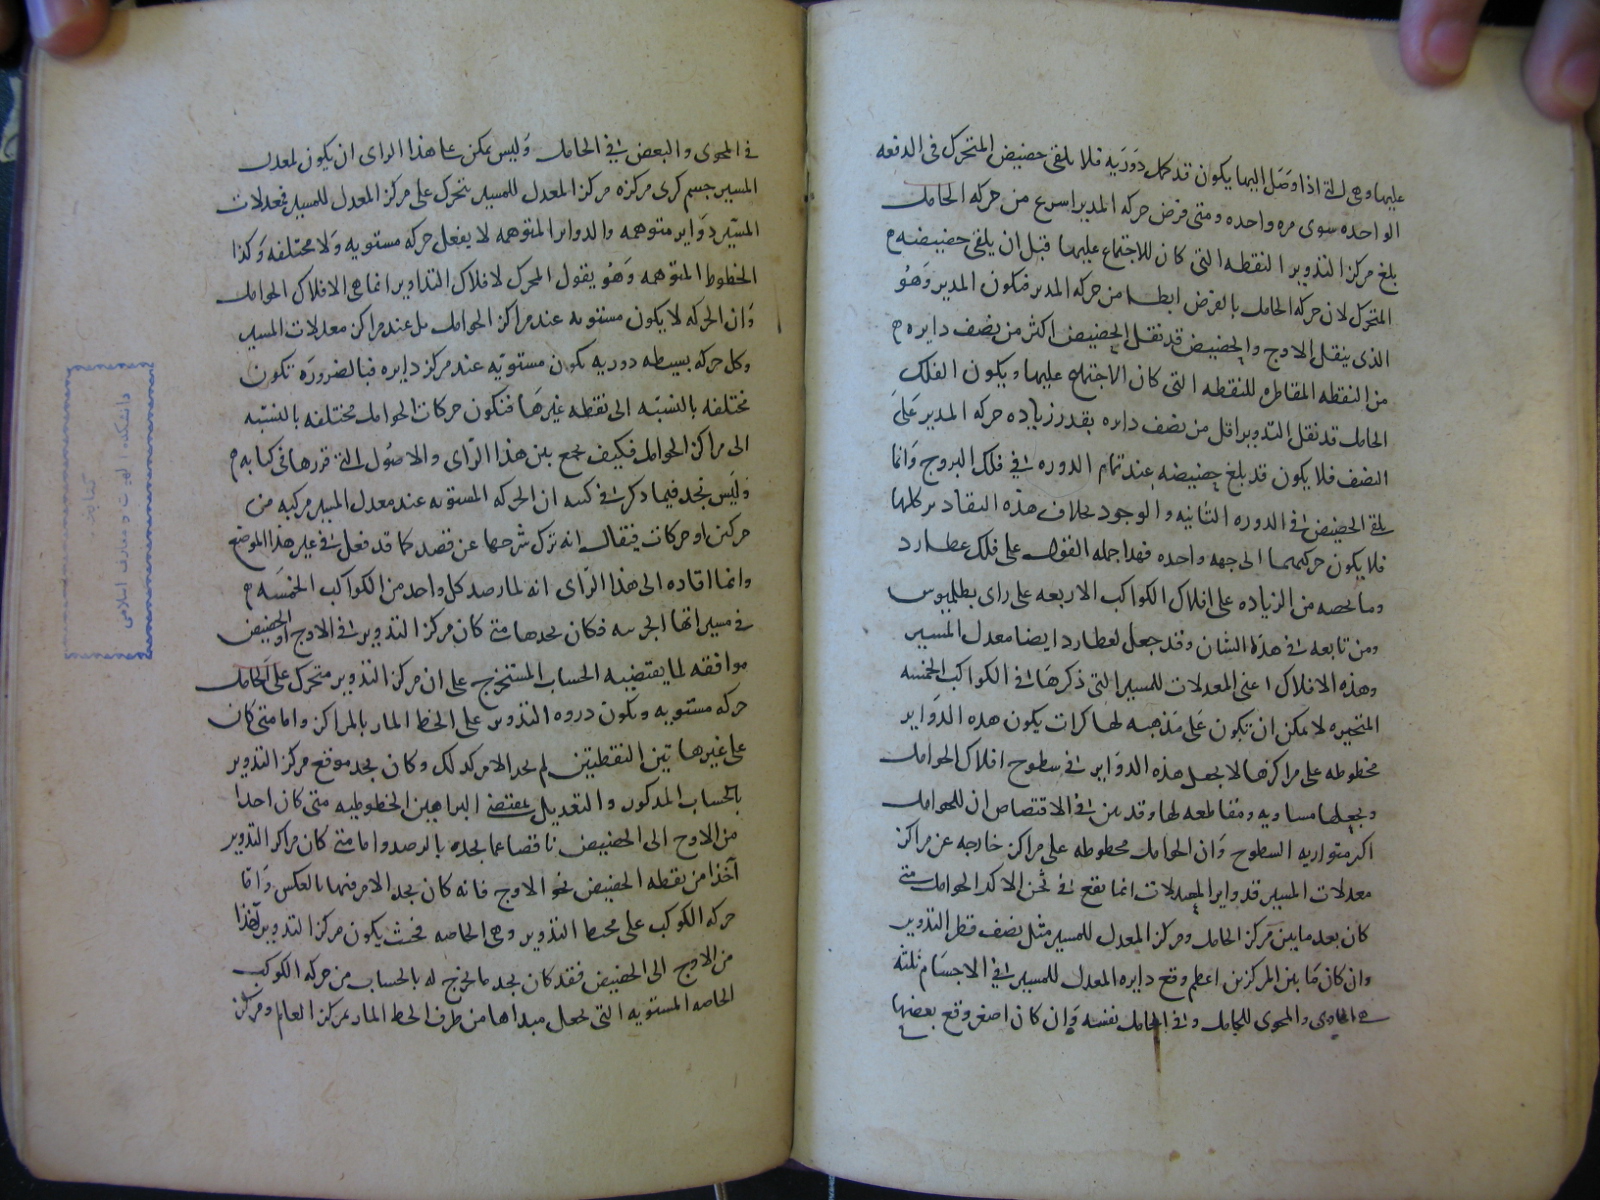 عليها وهى التى اذا وصل اليها يكون قد كمل دوريه فلا يلقى حضيض المتحرك فى الدفعه
الواحده سوى مره واحده ومتى فرض حركه المدير اسرع من حركه الحامل
بلغ مركز التدوير النقطه التى كان للاجتماع عليها قبل ان يلقى حضيضه
المتحرك لان حركه الحامل بالفرض ابطا من حركه المدير فيكون المدير وهو
الذى ينقل الاوج والحضيض قد نقل الحضيض اكثر من نصف دايره
من النقطه المقاطره للنقطه التى كان الاجتماع عليها ويكون الفلك
الحامل قد نقل التدوير اقل من نصف دايره بقدر زياده حركه المدير على
النصف فلا يكون قد بلغ حضيضه عند تمام الدوره فى فلك البروج وانما
يلقى الحضيض فى الدوره الثانيه والوجود بخلاف هذه التقادير كلها
فلا يكون حركتهما الى جهه واحده فهذا جمله القول على فلك عطارد
وما يخصه من الزياده على افلاك الكواكب الاربعه على راى بطلميوس
ومن تابعه فى هذا الشان وقد جعل لعطارد ايضا معدل المسير
وهذه الافلاك اعنى المعدلات للمسير التى ذكرها فى الكواكب الخمسه
المتحيره لا يمكن ان تكون على مذهبه لها كرات يكون هذه الدواير
مخطوطه على مراكزها لا يجعل هذه الدواير فى سطوح افلاك الحوامل
ويجعلها مساويه ومقاطعه لها وقد بين فى الاقتصاص ان للحوامل
اكر متوازيه السطوح وان الحوامل مخطوطه على مراكز خارجه عن مراكز
معدلات المسير فدواير المعدلات انما يقع فى ثخن الاكر الحوامل متى
كان بعد ما بين مركز الحامل ومركز المعدل للمسير مثل نصف قطر التدوير
وان كان ما بين المركزين اعظم وقع دايره المعدل للمسير فى الاجسام ثلثه
فى الحاوى والمحوى للحامل وفى الحامل نفسه وان كان اصغر وقع بعضها
فى المحوى والبعض فى الحامل وليس يمكن على هذا الراى ان يكون لمعدل
المسير جسم كرى مركزه مركز المعدل للمسير يتحرك على مركز المعدل للمسير فمعدلات
المسير دواير متوهمه والدواير المتوهمه لا يفعل حركه مستويه ولا مختلفه وكذا
الخطوط المتوهمه وهو يقول المحرك لافلاك التداوير انما هى الافلاك الحوامل
وان الحركه لا يكون مستويه عند مراكز الحوامل بل عند مراكز معدلات المسير
وكل حركه بسيطه دوريه تكون مستويه عند مركز دايره فبالضروره تكون
مختلفه بالنسبه الى نقطه غيرها فتكون حركات الحوامل مختلفه بالنسبه
الى مراكز الحوامل فكيف يجمع بين هذا الراى والاصول التى قررها فى كتابه
وليس نجد فيما ذكر فى كتبه ان الحركه المستويه عند معدل المسير مركبه من
حركتين او حركات فيقال انه ترك شرحها عن قصد كما قد فعل فى غير هذا الموضع
وانما اقاده الى هذا الراى انه لما رصد كل واحد من الكواكب الخمسه
فى مسيراتها الجزييه فكان يجدها متى كان مركز التدوير فى الاوج او الحضيض
موافقه لما يقتضيه الحساب المستخرج على ان مركز التدوير متحرك على الحامل
حركه مستويه ويكون دروه التدوير على الخط المار بالمراكز واما متى كان
على غير هاتين النقطتين لم يجد الامر كذلك وكان يجد موقع مركز التدوير
بالحساب المذكور والتعديل بمقتضى البراهين الخطوطيه متى كان اخذا
من الاوج الى الحضيض ناقصا عما يجده بالرصد واما متى كان مركز التدوير
آخذا من نقطه الحضيض نحو الاوج فانه كان يجد الامر فيها بالعكس واما
حركه الكوكب على محيط التدوير وهى الخاصه فحيث يكون مركز التدوير آخذا
من الاوج الى الحضيض فقد كان يجد ما يخرج له بالحساب من حركه الكوكب
الخاصه المستويه التى يجعل مبداها من طرف الخط المار بمركز العالم ومركز
دانشكده الهيات و معارف اسلامى